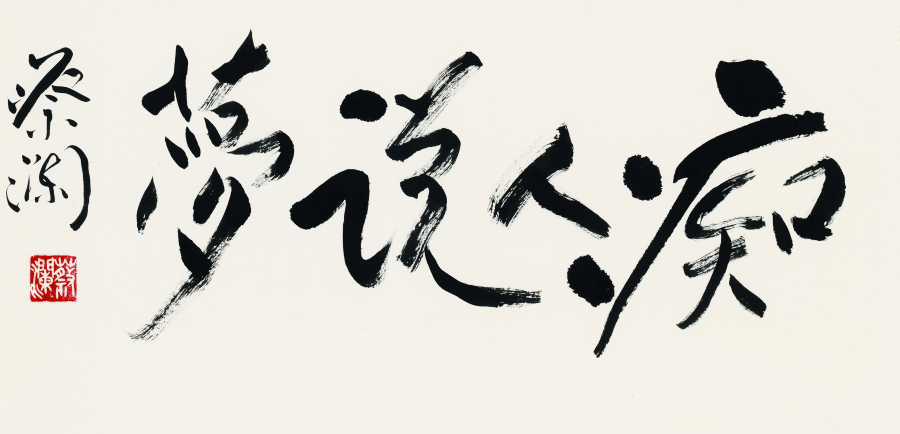 痴人說夢
蔡瀾
蔡瀾